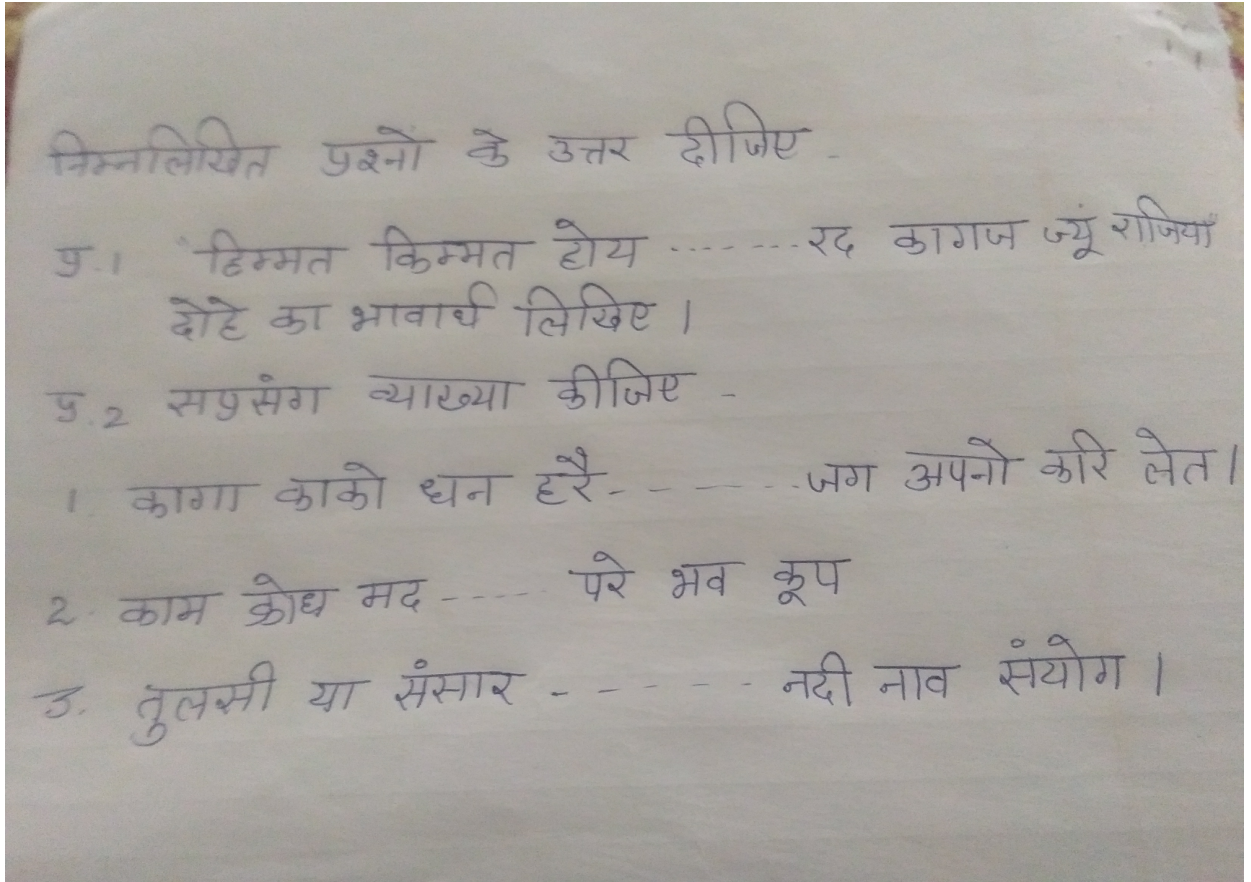 निम्नलिखित प्रश्नों के उत्तर दीजिए -
प्र.1 हिम्मत किम्मत होय ....... रद कागज ज्यूं राजिया
दोहे का भावार्थ लिखिए ।
प्र.2 सप्रसंग व्याख्या कीजिए -
1. कागा काको धन हरै - - - - - - - जग अपनो करि लेत ।
2. काम क्रोध मद ----- परे भव कूप
3. तुलसी या संसार - - - - - - नदी नाव संयोग ।